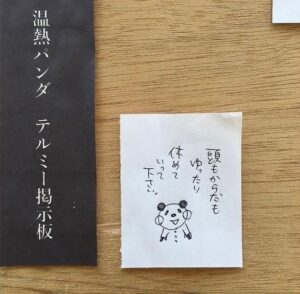 温熱パンダ テルミー掲示板
頭もからだも
ゆったり
休めて
いって
下さい。